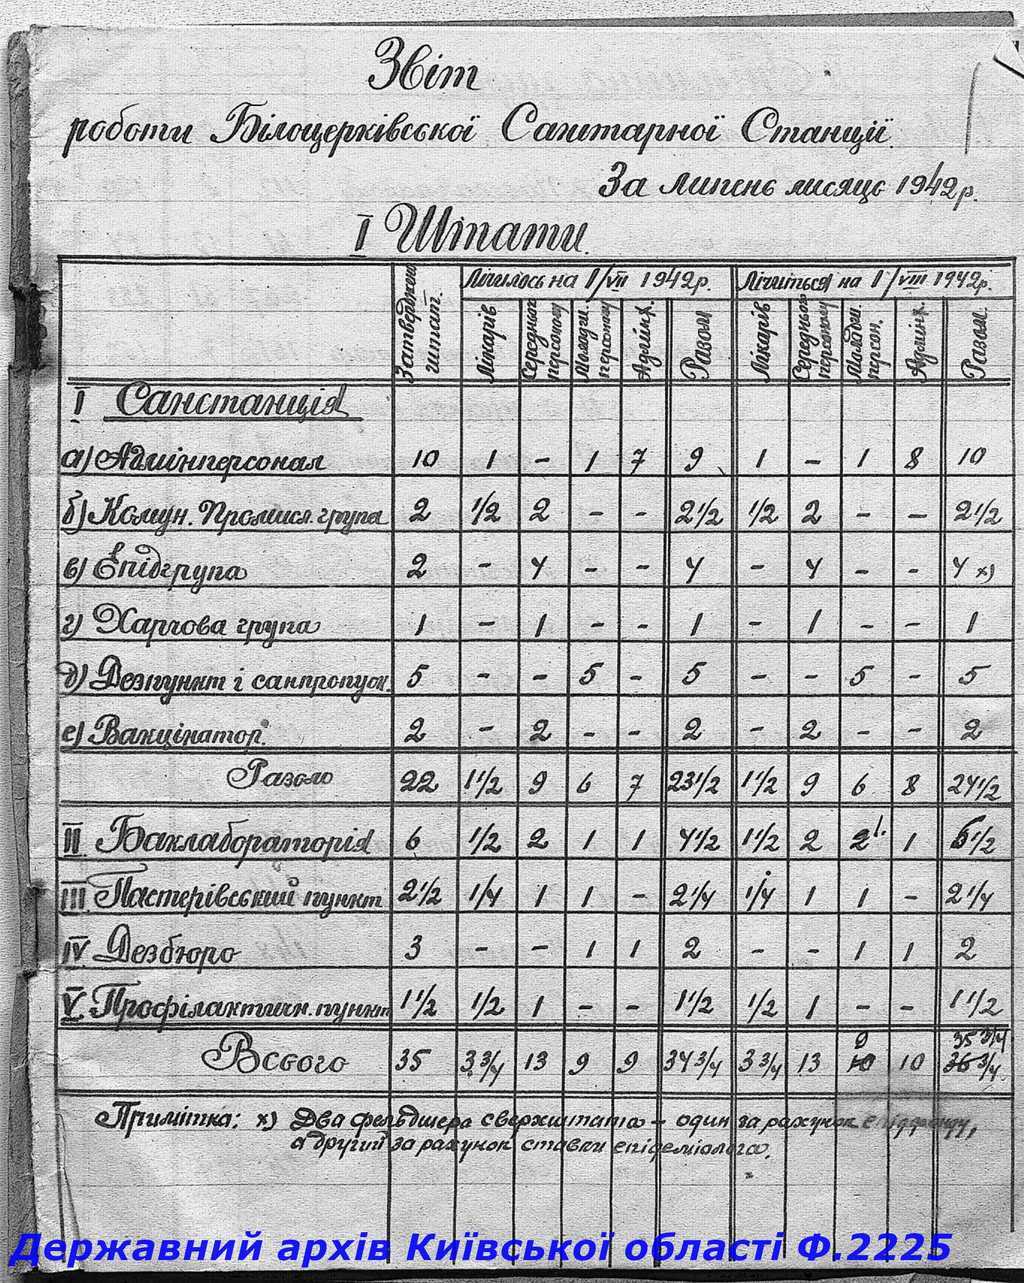 Звіт
роботи Білоцерківської Санітарної Станції.
За липень місяць 1942 р.
I Штати.
Затверджено штат. Лічилось на 1/VII 1942 р. Лічиться на 1/VIII 1942 р.
Лікарів Середньог персоналу Молодш. персоналу Адмінп. Разом Лікарів Середньог персоналу Молодш. персон. Адмінп. Разом.
I Санстанція
а) Адмінперсонал 10 1 – 1 7 9 1 – 1 8 10
б) Комун. Промисл. група 2 1/2 2 – – 2 1/2 1/2 2 – – 2 1/2
в) Епідгрупа 2 – 4 – – 4 – 4 – – 4 х)
г) Харчова група 1 – 1 – – 1 – 1 – – 1
д) Дезпункт і санпропуск. 5 – – 5 – 5 – – 5 – 5
е) Вакцінатор. 2 – 2 – – 2 – 2 – – 2
Разом 22 1 1/2 9 6 7 23 1/2 1 1/2 9 6 8 24 1/2
II. Баклабораторія 6 1/2 2 1 1 4 1/2 1 1/2 2 2 1. 1 6 1/2
III. Пастерівський пункт 2 1/2 1/4 1 1 – 2 1/4 1/4 1 1 – 2 1/4
IV. Дезбюро 3 – – 1 1 2 – – 1 1 2
V. Профілактичн. пункт 1 1/2 1/2 1 – – 1 1/2 1/2 1 – – 1 1/2
9 35 3/4
Всього 35 3 3/4 13 9 9 34 3/4 3 3/4 13 10 10 36 3/4
Примітка: х) Два фельдшера сверхштата – один за рахунок епідфонду,
а другий за рахунок ставки епідеміолога.
Державний архів Київської області Ф.2225